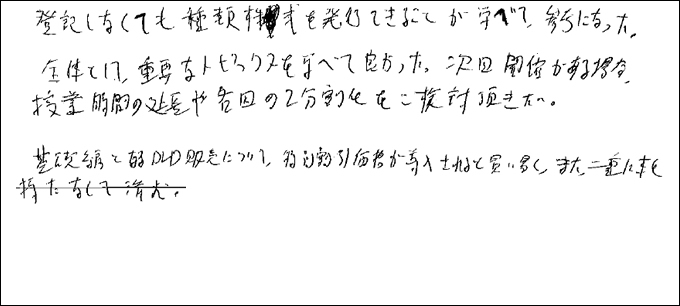 登記しなくても種類株式を発行できることが学べて、参考になった。
全体として、重要なトピックスを学べて良かった。次回開催がある場合、
授業時間の延長や各回の2分割化をご検討頂きたい。
基礎編とのDVD販売について、特別割引価格が導入されると買い易く、また二重に本を
持たなくて済む。